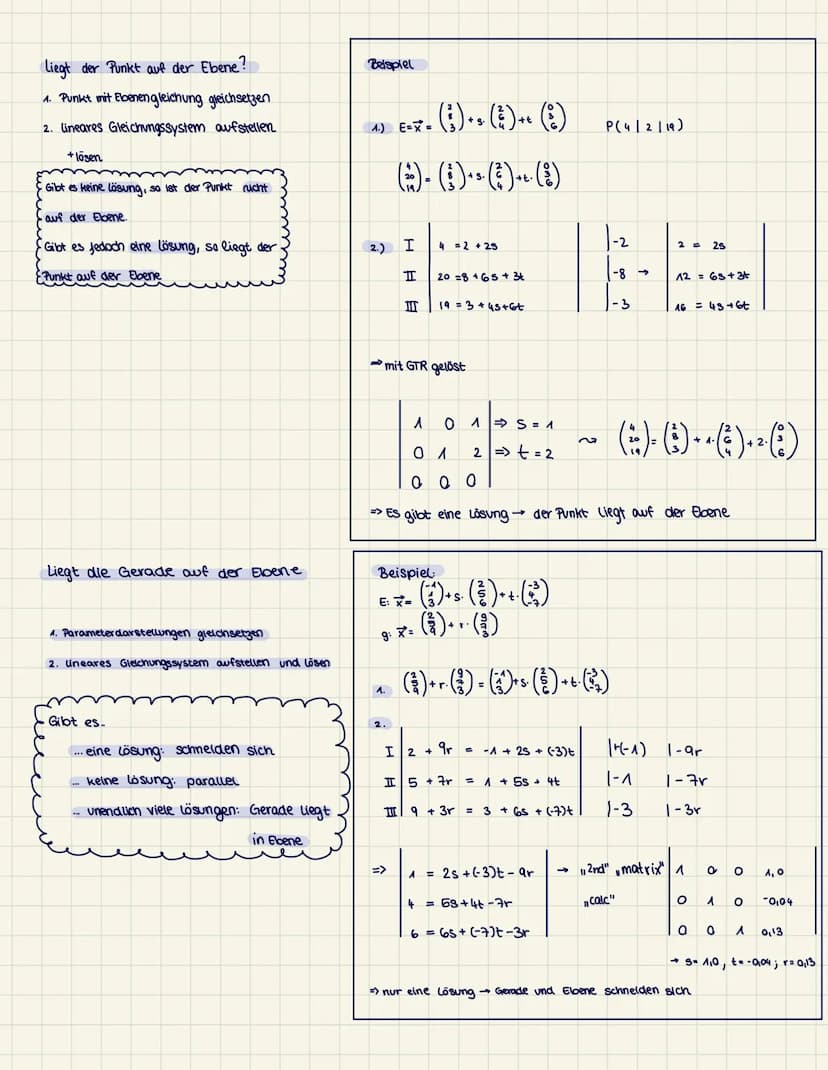 Liegt der Punkt auf der Ebene?
1. Punkt mit Ebenengleichung gleichsetzen
2. lineares Gleichungssystem aufstellen
+ lösen
Gibt es keine Lösung, so ist der Punkt nicht
auf der Ebene.
Gibt es jedoch eine Lösung, so liegt der
Punkt auf der Ebene
Beispiel
1.) E = x⃗ = (2 8 3) + s· (2 6 4) + t (0 3 6) P(4 | 2 | 19)
(4 20 19) = (2 8 3) + s· (2 6 4) + t· (0 3 6)
2.) I | 4 = 2 + 2s | |-2 | 2 = 2s |
II | 20 = 8 + 6s + 3t | |-8 → | 12 = 6s + 3t |
III | 19 = 3 + 4s + 6t | |-3 | 16 = 4s + 6t |
→ mit GTR gelöst
| 1 0 1 | ⇒ s = 1
| 0 1 2 | ⇒ t = 2 ⤳ (4 20 19) = (2 8 3) + 1· (2 6 4) + 2· (0 3 6)
| 0 0 0 |
⇒ Es gibt eine Lösung → der Punkt liegt auf der Ebene
Liegt die Gerade auf der Ebene
1. Parameterdarstellungen gleichsetzen
2. lineares Gleichungssystem aufstellen und lösen
Gibt es..
... eine Lösung: schneiden sich
... keine Lösung: parallel
... unendlich viele Lösungen: Gerade liegt
in Ebene
Beispiel:
E: x⃗ = (-1 1 3) + s· (2 5 6) + t· (-3 4 -7)
g: x⃗ = (2 5 9) + r· (9 7 3)
1. (2 5 9) + r· (9 7 3) = (-1 1 3) + s· (2 5 6) + t· (-3 4 -7)
2.
I | 2 + 9r = -1 + 2s + (-3)t | |+(-1) |-9r
II | 5 + 7r = 1 + 5s + 4t | |-1 |-7r
III | 9 + 3r = 3 + 6s + (-7)t | |-3 |-3r
⇒ | 1 = 2s + (-3)t - 9r | → „2nd" „matrix" | 1 0 0 1,0 |
| 4 = 5s + 4t - 7r „calc" | 0 1 0 -0,04 |
| 6 = 6s + (-7)t - 3r | 0 0 1 0,13 |
→ s = 1,0, t = -0,04 ; r = 0,13
⇒ nur eine Lösung → Gerade und Ebene schneiden sich